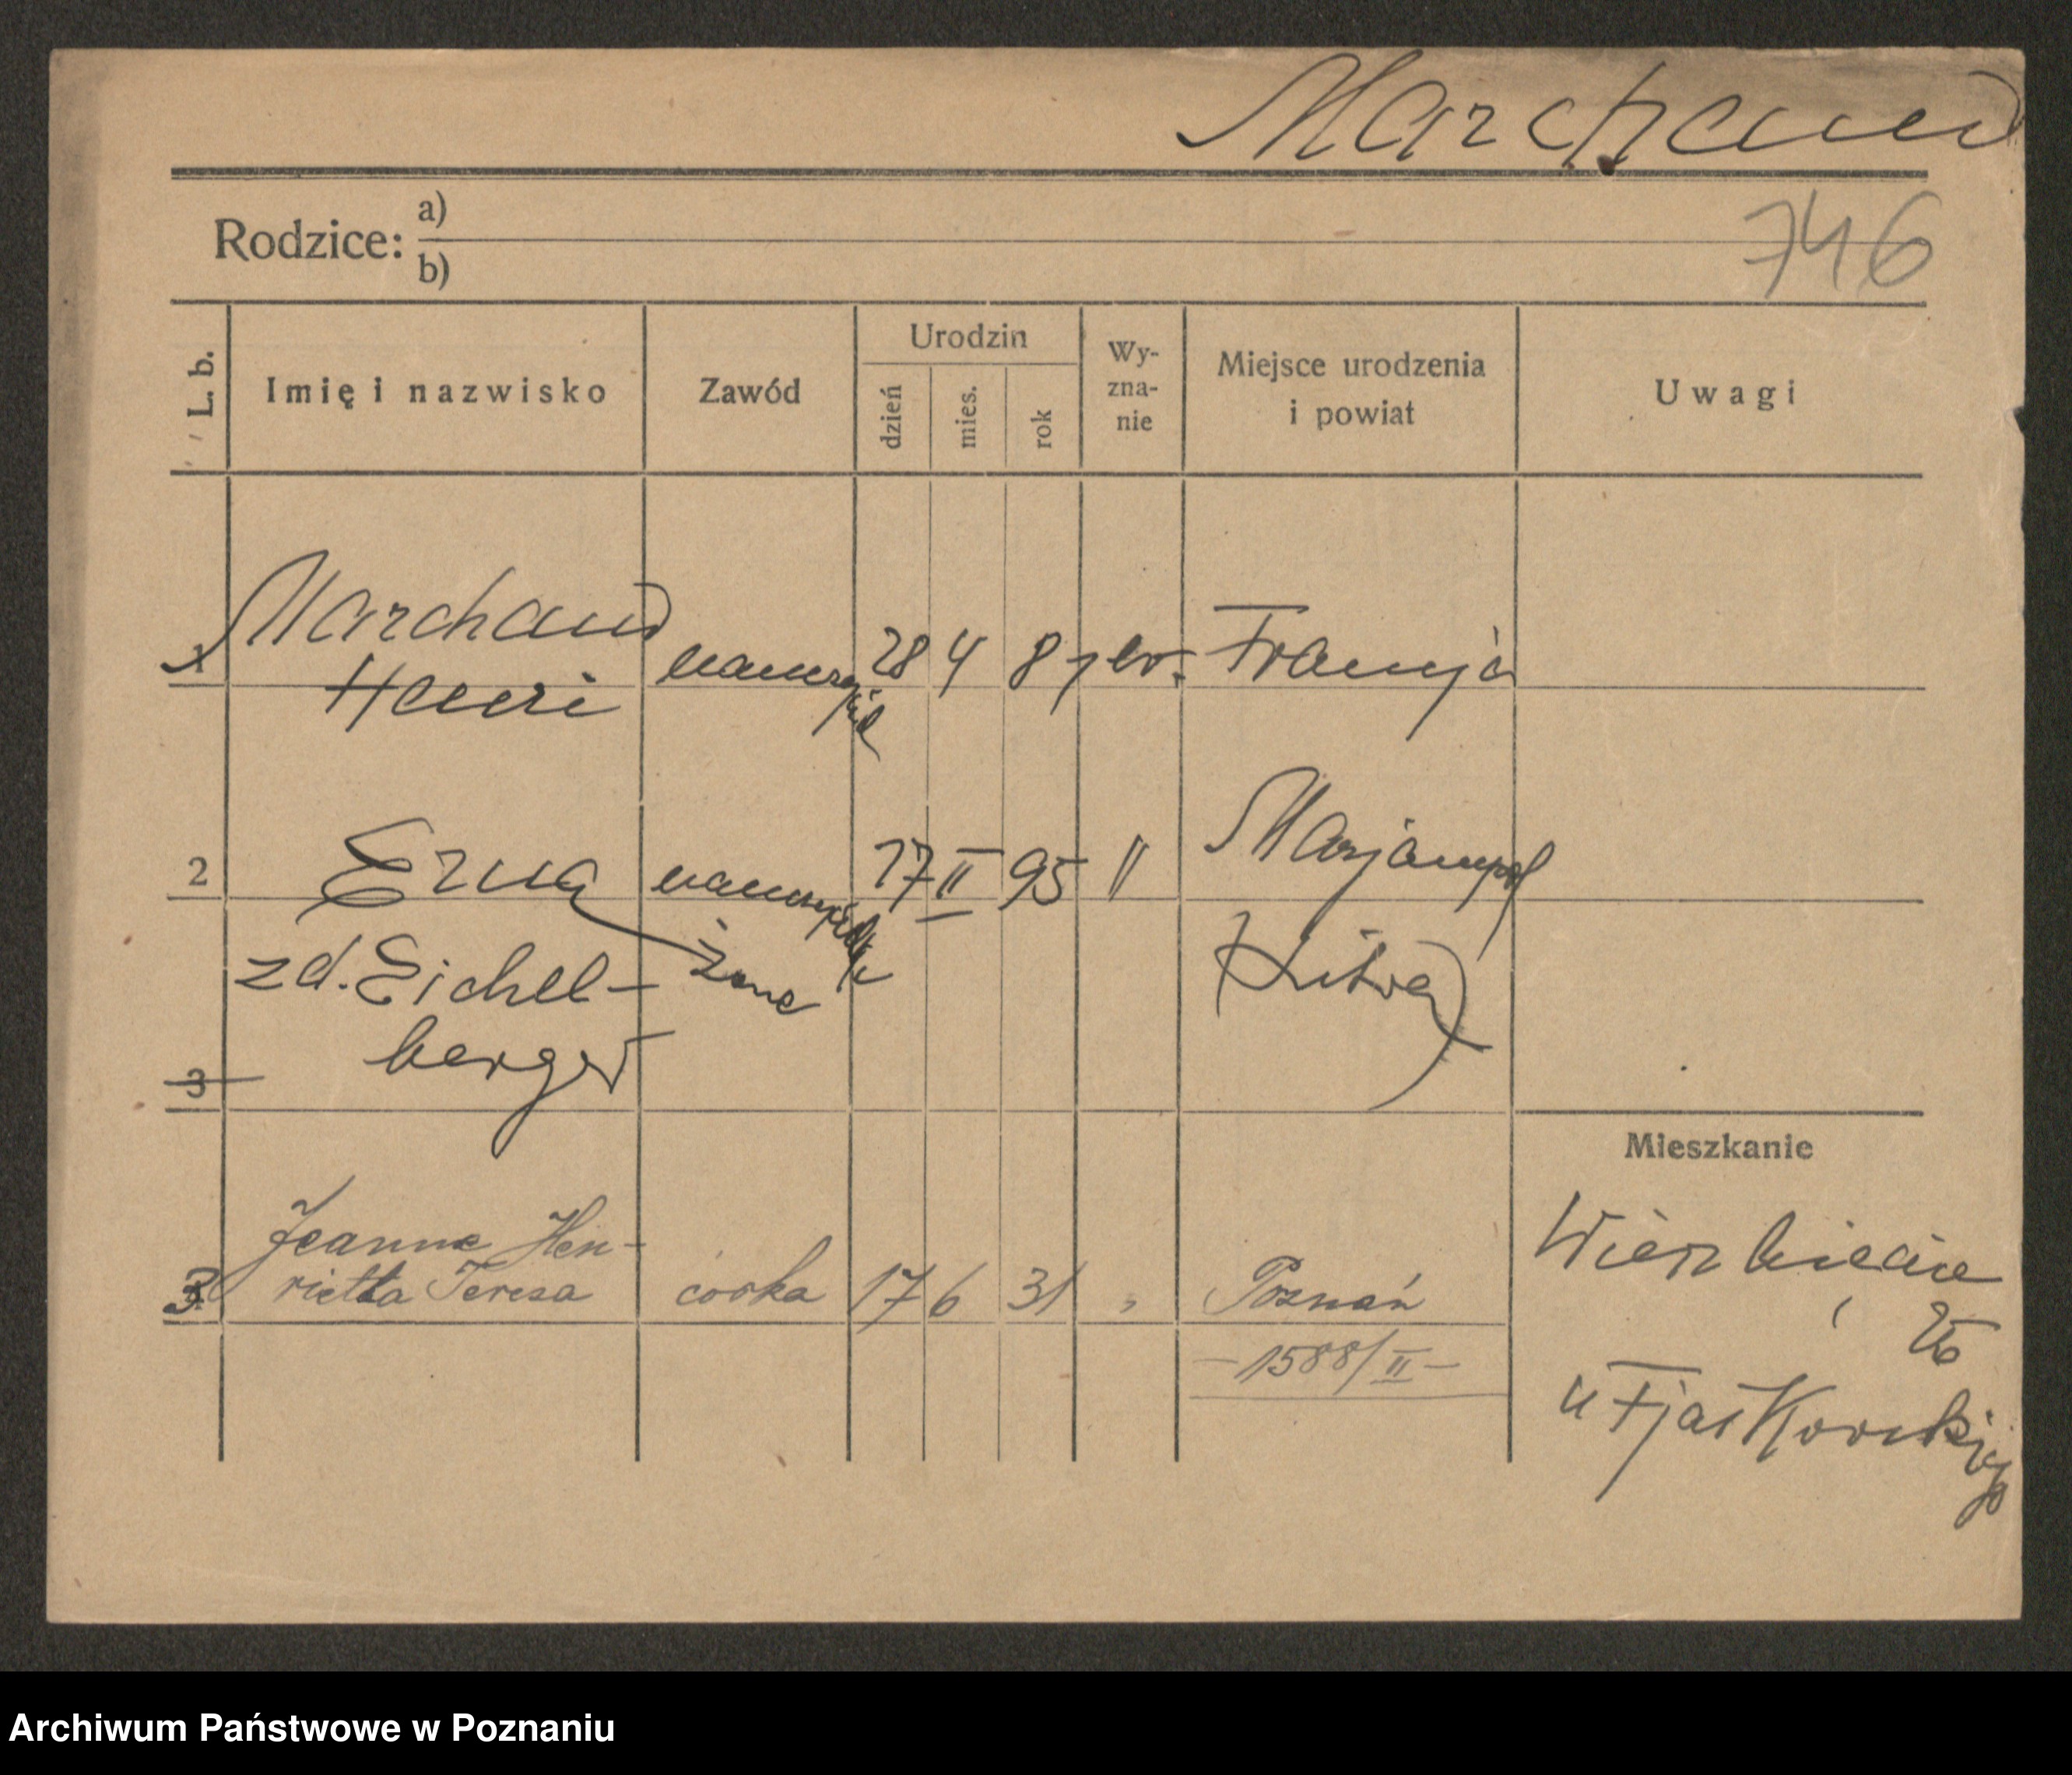 Marchand
Rodzice: a)
b)
746
L. b. Imię i nazwisko Zawód Urodzin dzień mies. rok Wy-zna-nie Miejsce urodzenia i powiat Uwagi
1 Marchand
Henri nauczyciel 28 4 87 ew. Francja
2 Erna nauczycielka 17 II 95 " Marjampol
zd. Eichel- żona (Litwa)
berger
3
Mieszkanie
Jeanne Hen-
3 rietta Teresa córka 17 6 31 " Poznań
- 1588/II -
Wierzbięcice
26
u Fjałkowskiego
Archiwum Państwowe w Poznaniu